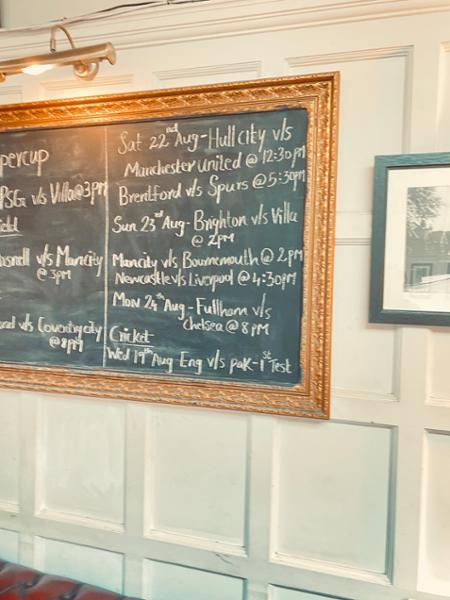 percup
PSG v/s Villa@3pm
v/s Mancity
@3pm
v/s Coventrycity
@8pm
Sat 22nd Aug - Hullcity v/s
Manchester united @ 12:30pm
Brentford v/s Spurs @ 5:30pm
Sun 23rd Aug - Brighton v/s Villa
@ 2pm
Mancity v/s Bournemouth @ 2pm
Newcastle v/s Liverpool @ 4:30pm
Mon 24th Aug - Fullham v/s
Chelsea @ 8pm
Cricket
Wed 19th Aug - Eng v/s pak - 1st Test